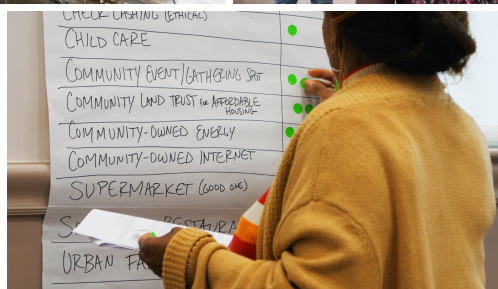 CHECK CASHING (ETHICAL)
CHILD CARE
COMMUNITY EVENT/GATHERING SPOT
COMMUNITY LAND TRUST for AFFORDABLE
HOUSING
COMMUNITY-OWNED ENERGY
COMMUNITY-OWNED INTERNET
SUPERMARKET (GOOD ONE)
URBAN